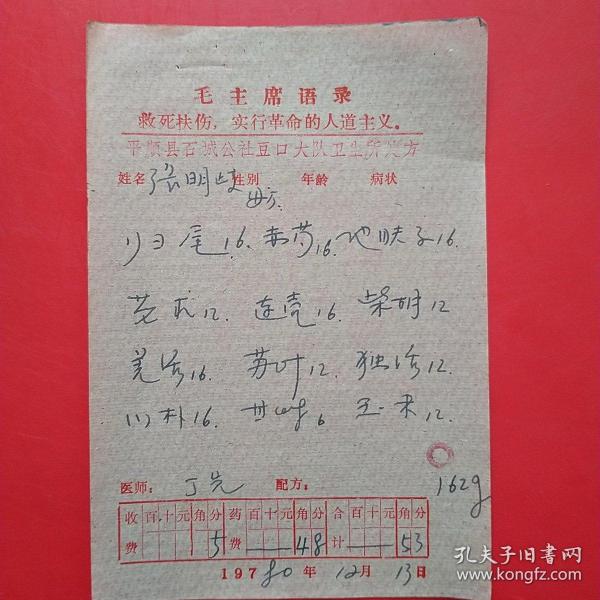 毛主席语录
救死扶伤，实行革命的人道主义。
平顺县石城公社豆口大队卫生所处方
姓名 张明 性别 年龄 病状
归尾16. 赤芍16. 地肤子16.
12. 连壳16. 柴胡12
羌活16. 苏叶12. 独活12.
川朴16. 甘草6 12.
医师： 丁 配方： 162g
收费 百十元角分 5 药费 百十元角分 48 合计 百十元角分 53
197 80 年 12月 13日
孔夫子旧书网
www.kongfz.com